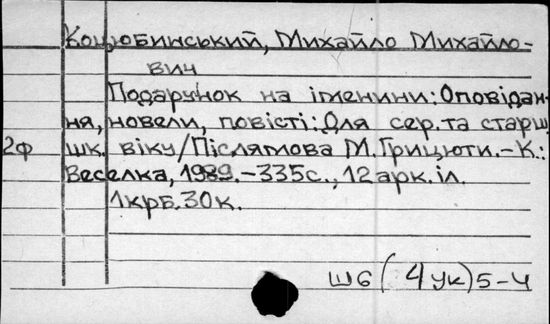 Коцюбинський, Михайло Михайло-
вич
Подарунок на іменини: Оповідан-
ня, новели, повісті: Для сер. та старш.
2ф шк. віку/Післямова М. Грицюти. – К.:
Веселка, 1989. – 335с., 12 арк. іл.
1крб. 30к.
Ш6(4Ук)5-4